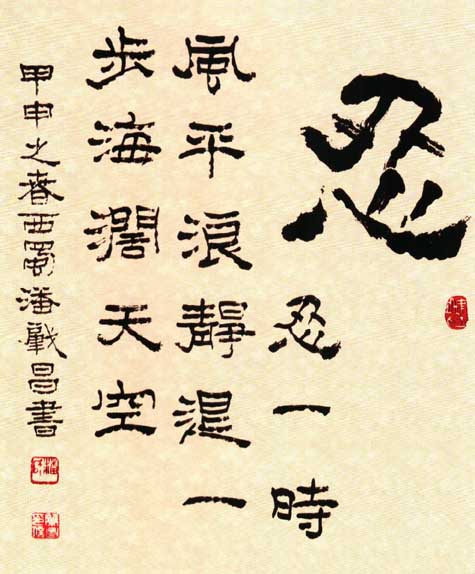 忍
忍一時
風平浪靜退一
步海濶天空
甲申之春西蜀潘戰昌書